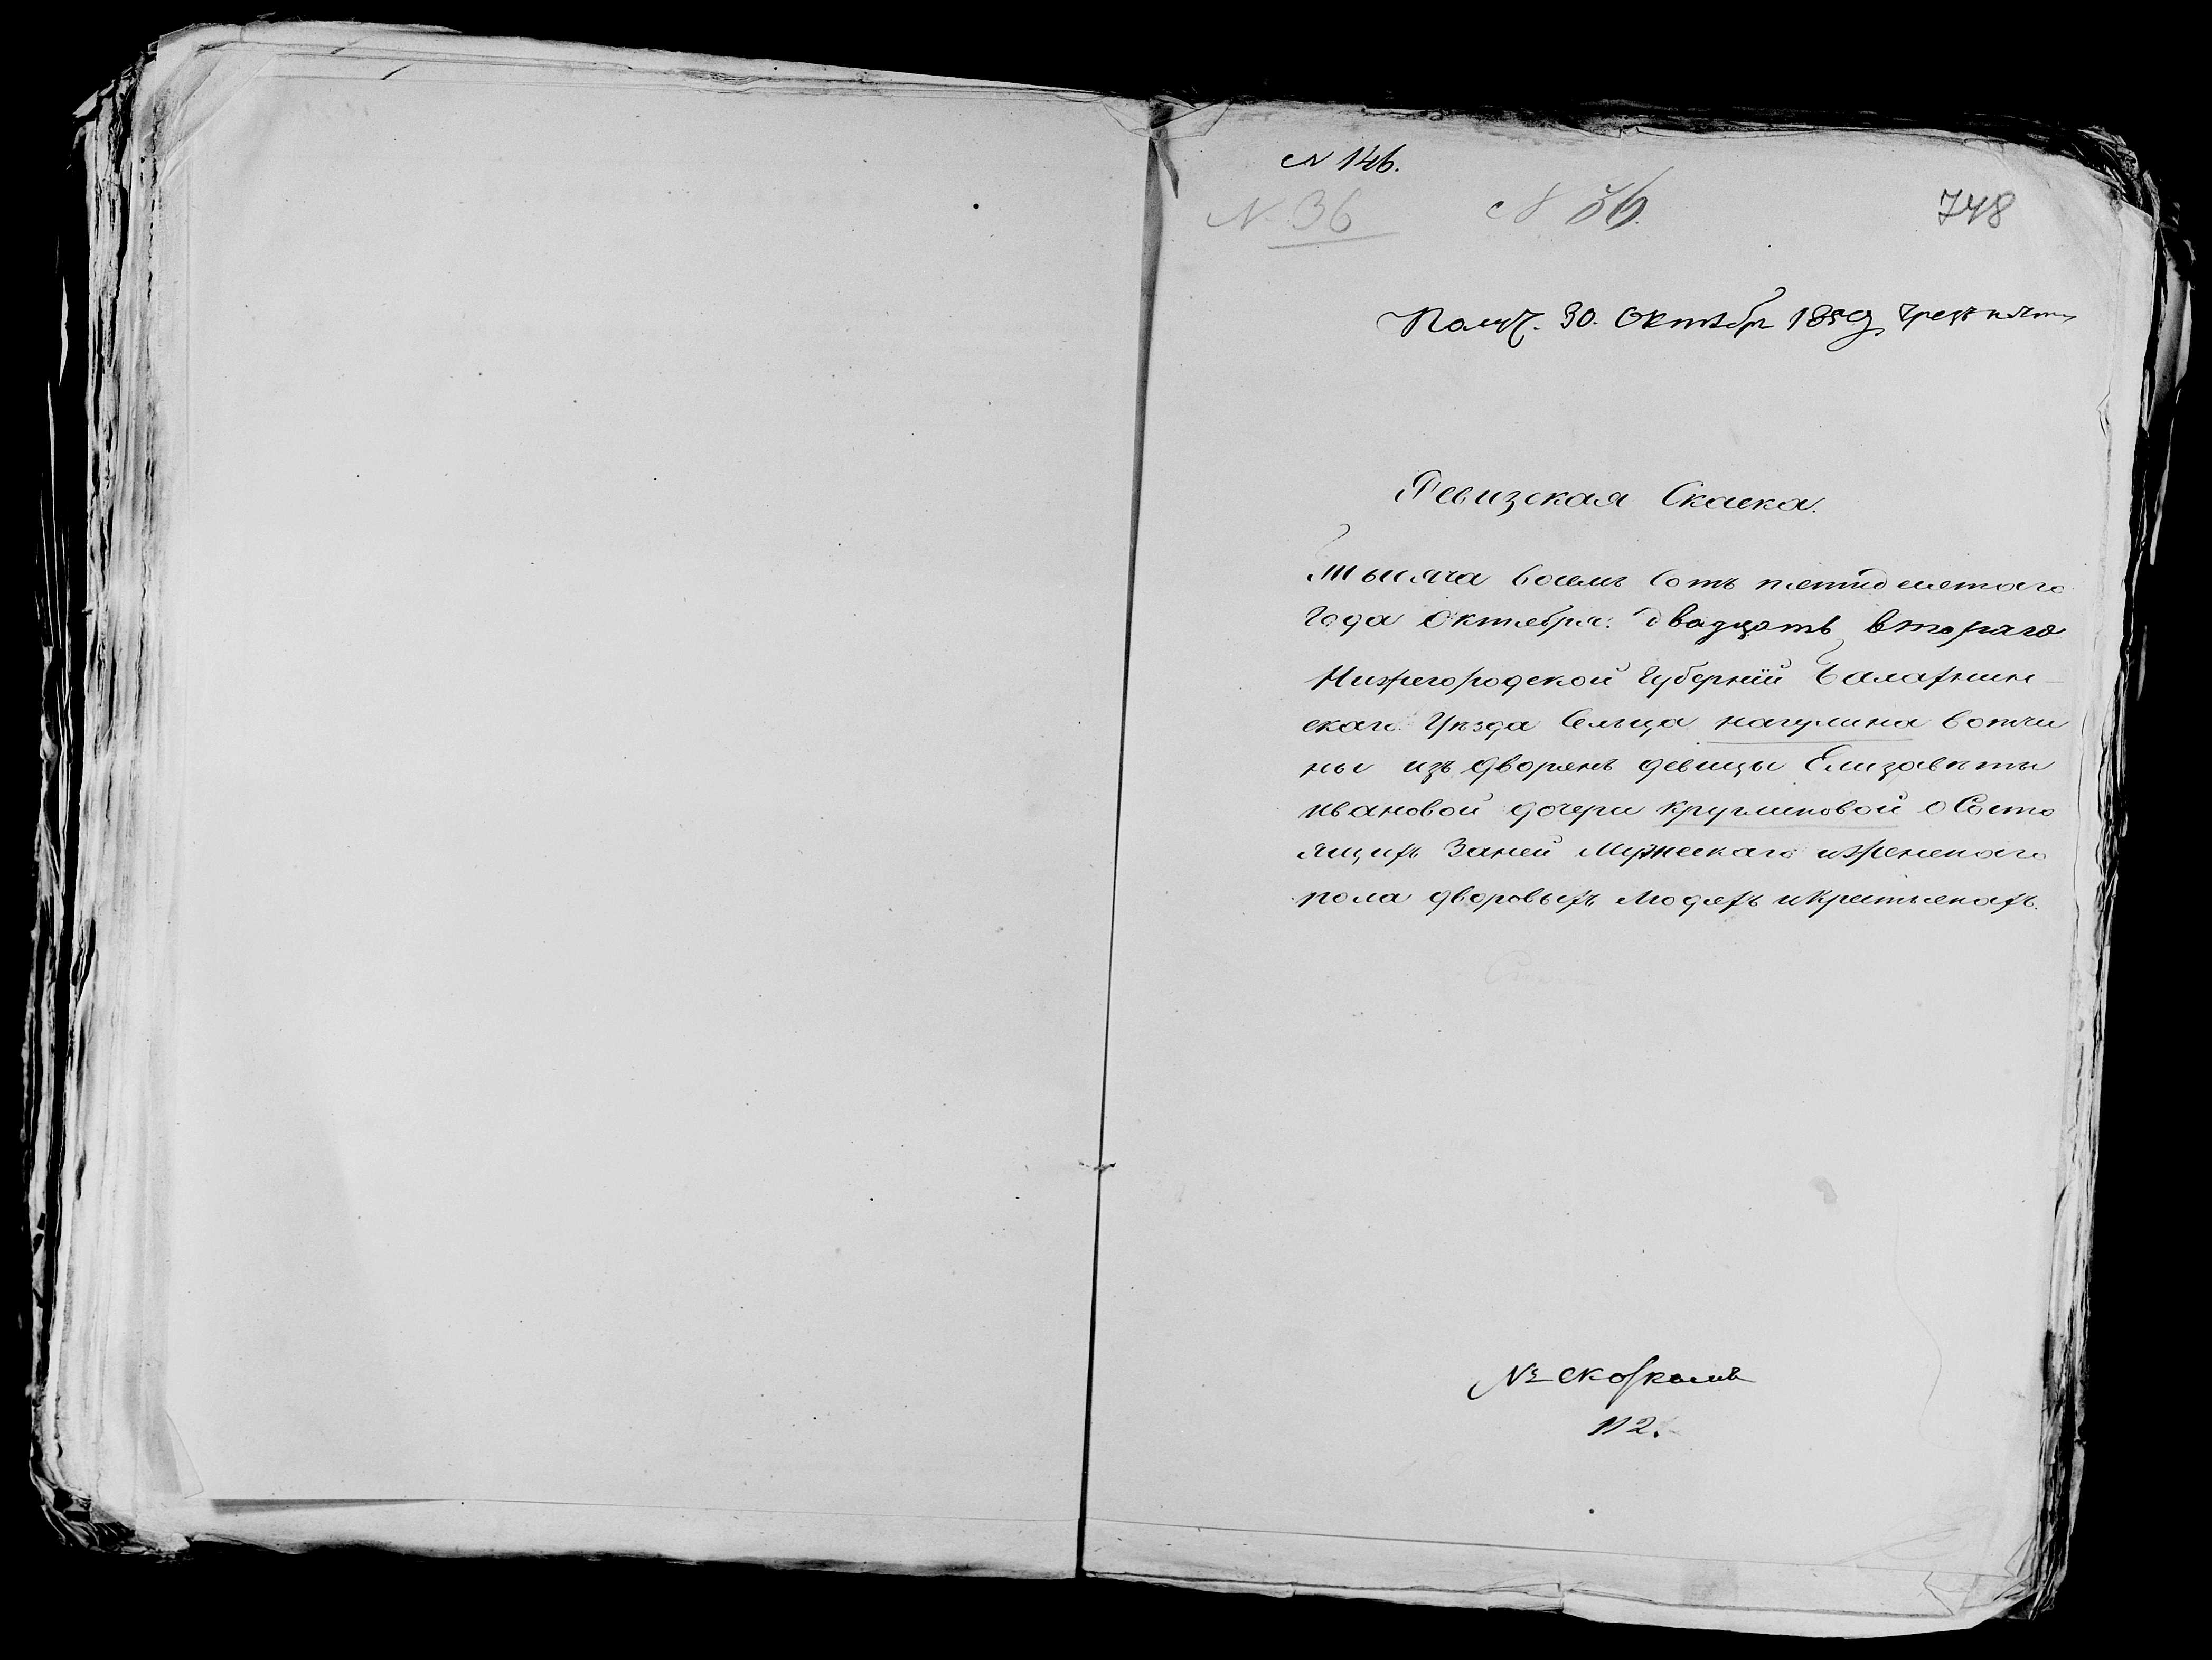 N 146.
N 36 N 36. 748
Получ. 30. Октября 1850 чрез
Ревизская Скаска.
Тысяча Восемь Сотъ пятидесятаго
Года Октября. двадцать втораго
Нижегородской Губерніи Балахнин-
скаго Уѣзда Сельца нагулина вотчи
ны изъ дворянъ девицы Елизаветы
Ивановой дочери кругликовой о Состо
ящихъ Заней Мужескаго иженскаго
пола дворовыхъ людехъ икрестьянахъ.
112.